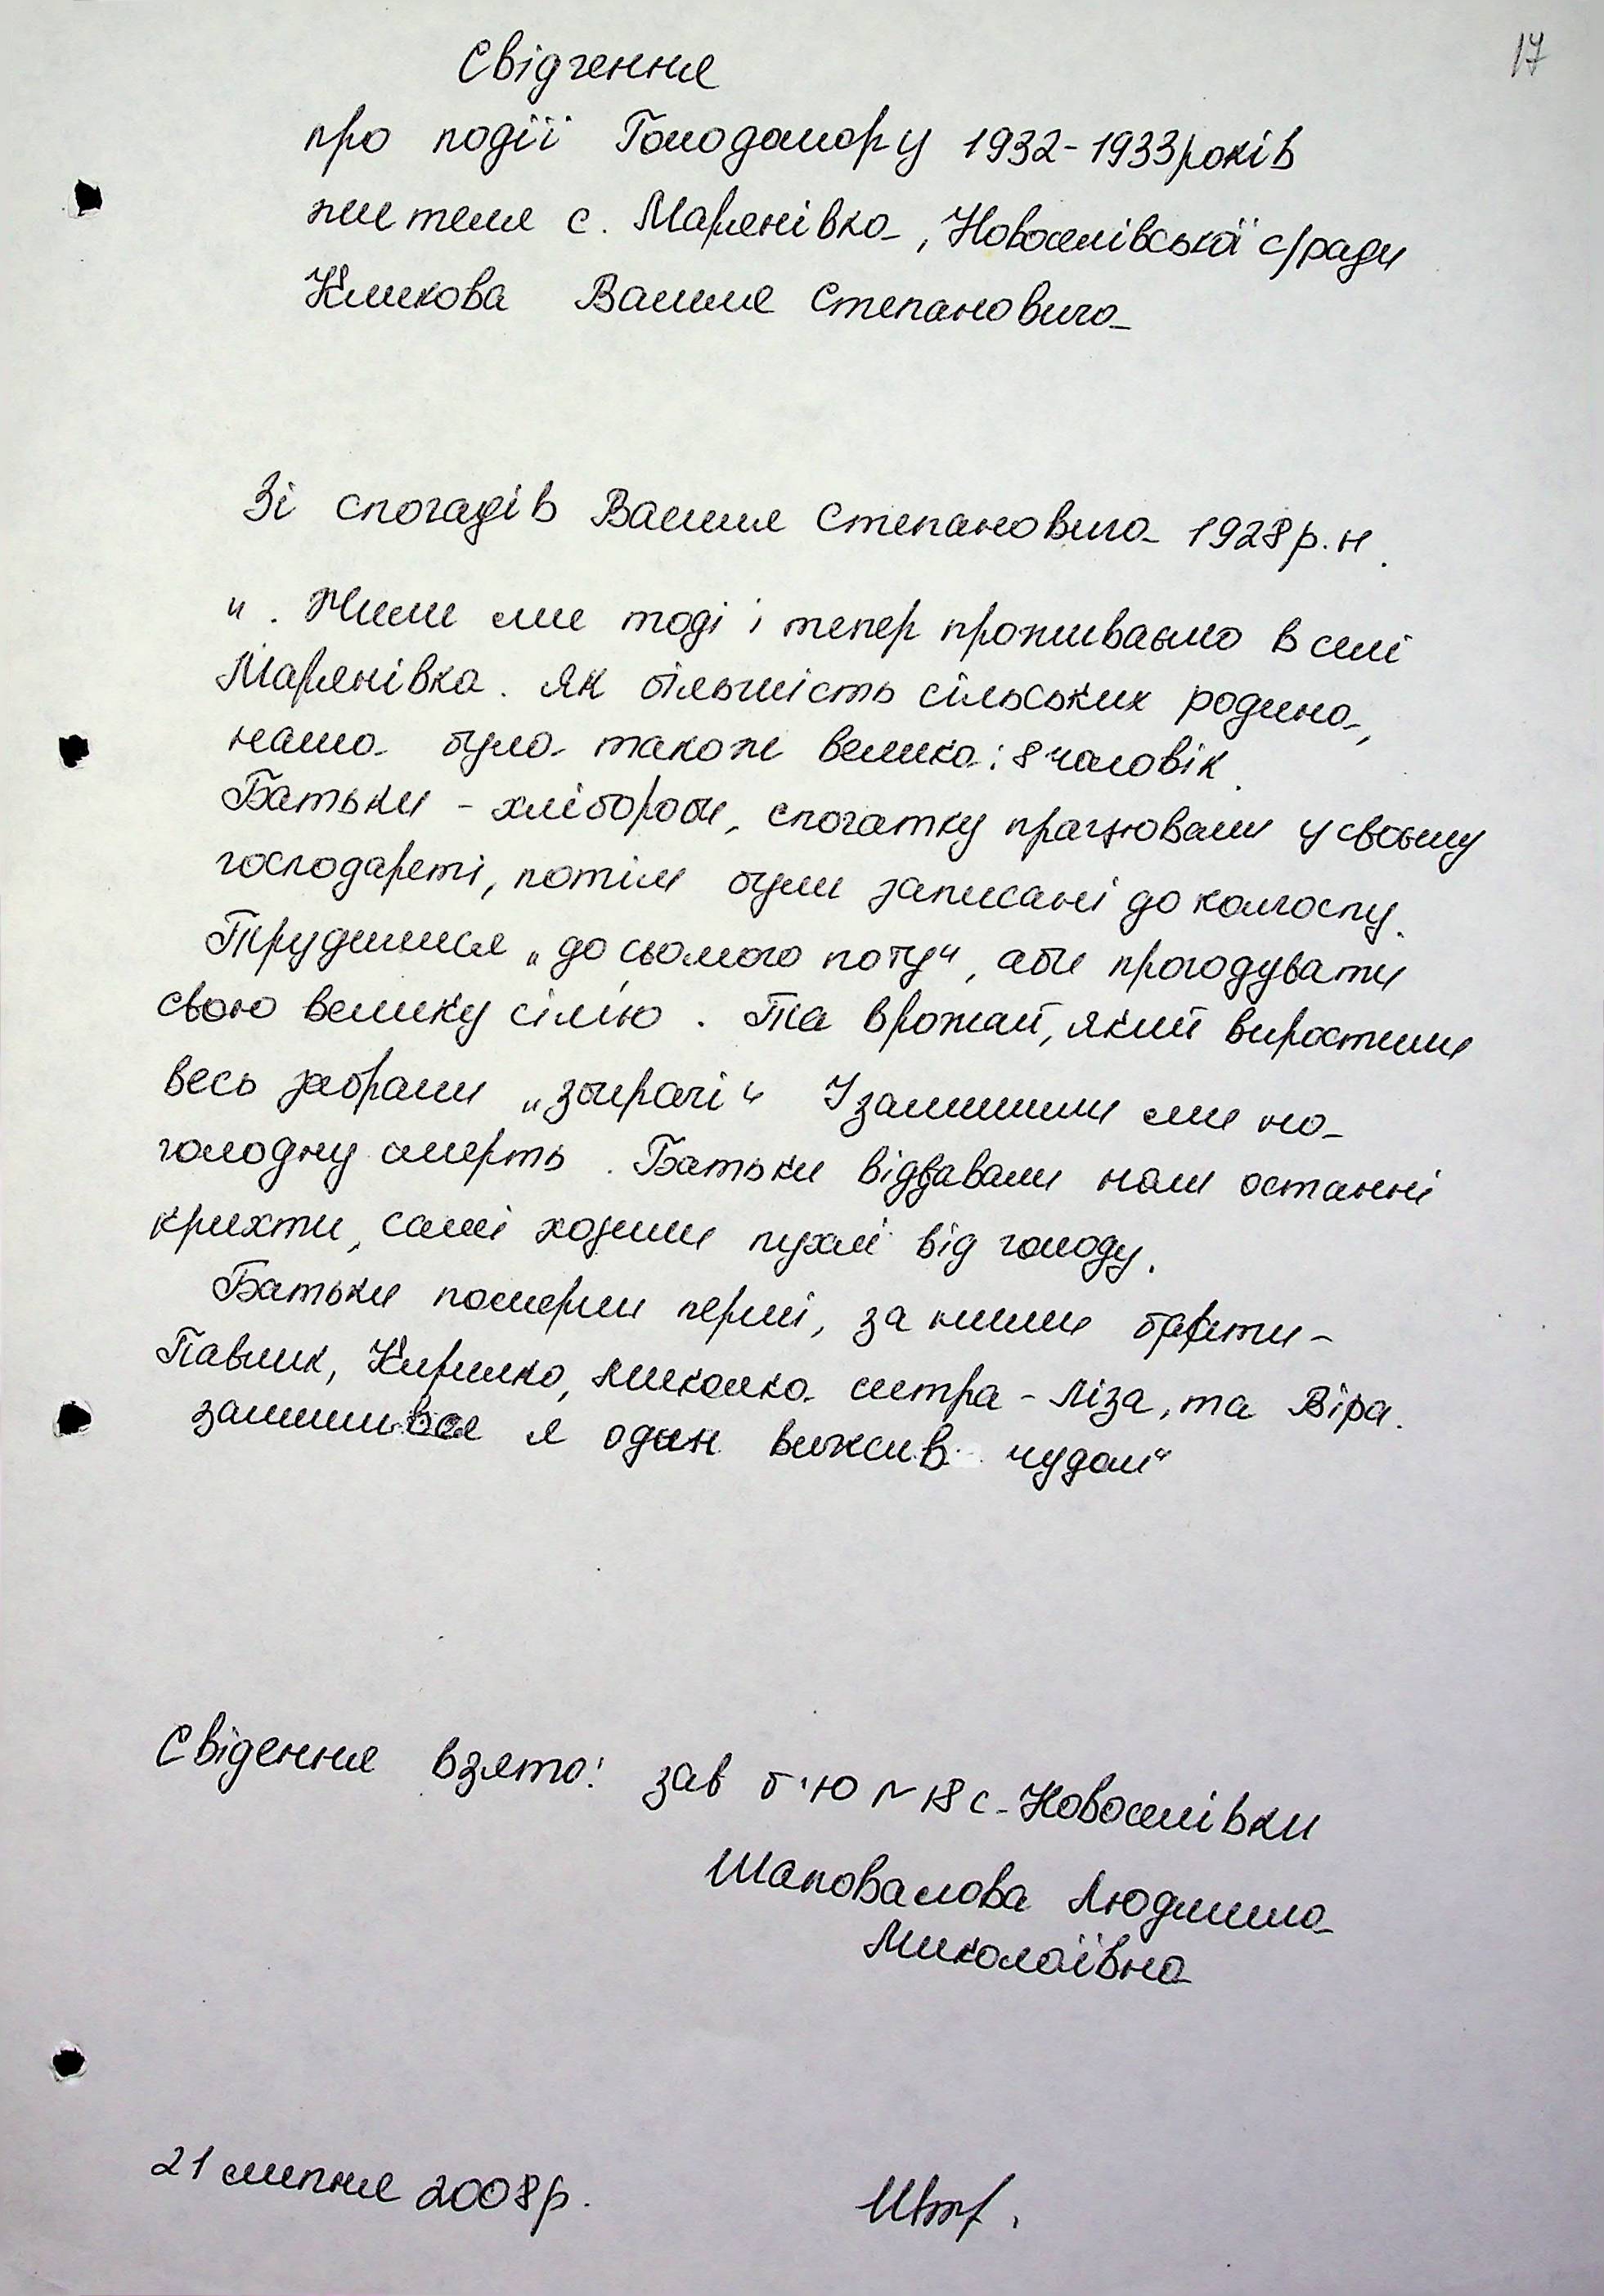 17
Свідчення
про події Голодомору 1932-1933 років
жителя с. Мар'янівка, Новоселівської с/ради
Кликова Василя Степановича
Зі спогадів Василя Степановича 1928 р.н.
". Жили ми тоді і тепер проживаємо в селі
Мар'янівка. Як більшість сільських родина,
наша була також велика: 8 чоловік.
Батьки - хлібороби, спочатку працювали у своєму
господарстві, потім були записані до колгоспу.
Трудилися "до сьомого поту", аби прогодувати
свою велику сім'ю. Та врожай, який виростили
весь забрали "збирачі" І залишили ми на
голодну смерть. Батьки віддавали нам останні
крихти, самі ходили пухлі від голоду.
Батьки померли перші, за ними брати -
Павлик, Кирилко, Миколка сестра - Ліза, та Віра.
залишився я один вижив чудом"
Свідення взято: зав б-ю №18 с. Новоселівки
Шаповалова Людмила
Миколаївна
21 липня 2008 р.